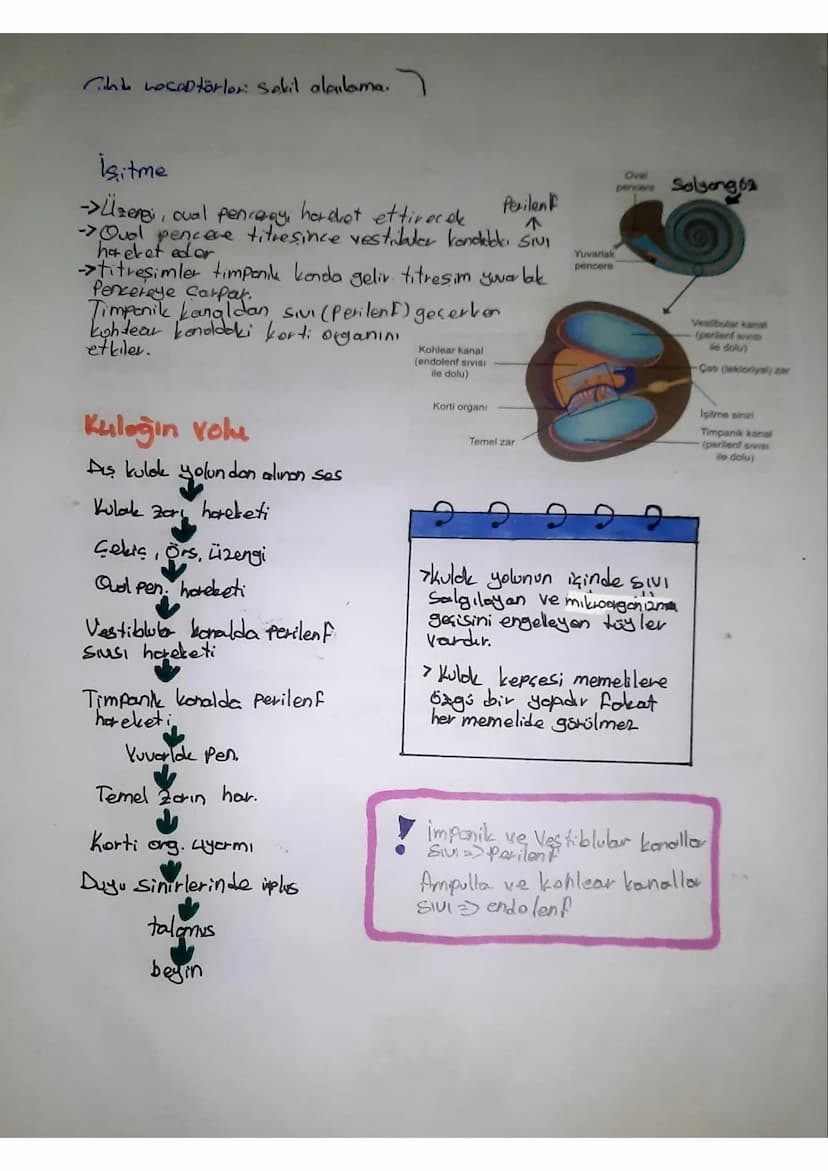 reseptörler: şekil algılama.
İşitme
->Üzengi, oval pencereyi hareket ettirecek
Perilenf
->Oval pencere titreşince vestibular kanaldaki sıvı
hareket eder
->titreşimler timpanik kanala gelir titreşim yuvarlak
Pencereye çarpar.
Timpanik kanaldan sıvı (perilenf) geçerken
kohlear kanaldaki korti organını
etkiler.
Oval
pencere
Salyangoz
Yuvarlak
pencere
Vestibular kanal
(perilenf sıvısı
ile dolu)
Kohlear kanal
(endolenf sıvısı
ile dolu)
Çatı (tektoriyal) zar
Korti organı
İşitme siniri
Temel zar
Timpanik kanal
(perilenf sıvısı
ile dolu)
Kulağın yolu
Dış kulak yolundan alınan ses
Kulak zarı hareketi
Çekiç, Örs, üzengi
Oval pen. hareketi
Vestiblular kanalda perilenf
sıvısı hareketi
Timpanik kanalda perilenf
hareketi
Yuvarlak pen.
Temel zarın har.
Korti org. uyarımı
Duyu sinirlerinde inplus
talamus
beyin
>Kulak yolunun içinde sıvı
salgılayan ve mikroorganizma
geçişini engelleyen tüyler
vardır.
> Kulak kepçesi memelilere
özgü bir yapıdır fakat
her memelide görülmez
! imponik ve Vestiblular kanallar
sıvı => perilenf
Ampulla ve kohlear kanallar
sıvı => endolenf